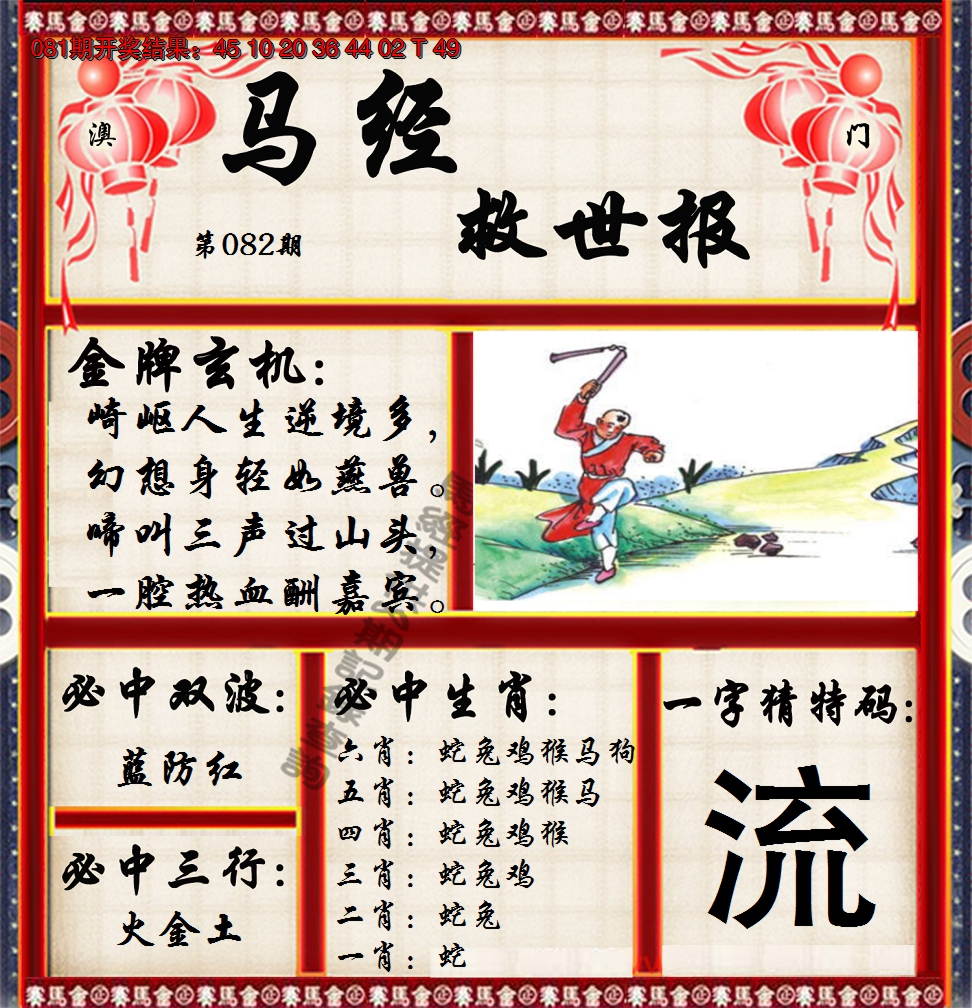 081期开奖结果：45 10 20 36 44 02 T 49
澳门
马经
救世报
第082期
金牌玄机：
崎岖人生逆境多，
幻想身轻如燕兽。
啼叫三声过山头，
一腔热血酬嘉宾。
必中双波：
蓝防红
必中三行：
火金土
必中生肖：
六肖：蛇兔鸡猴马狗
五肖：蛇兔鸡猴马
四肖：蛇兔鸡猴
三肖：蛇兔鸡
二肖：蛇兔
一肖：蛇
一字猜特码：
流